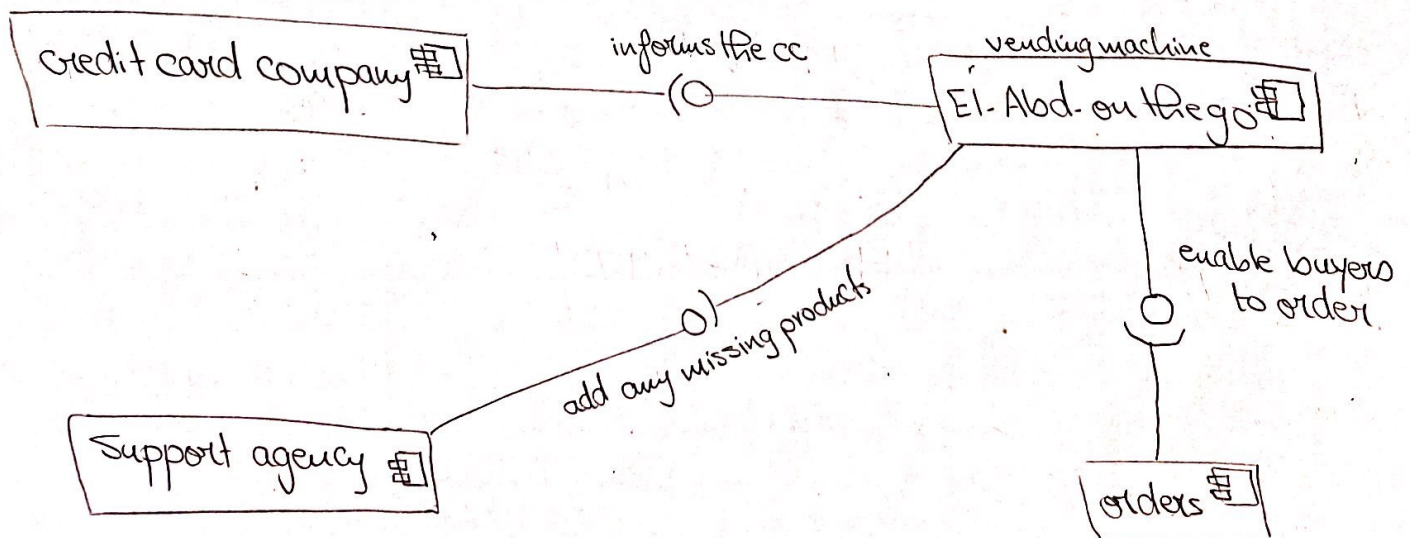 credit card company
informs the cc
vending machine
El-Abd-on the go
enable buyers
to order
add any missing products
Support agency
orders